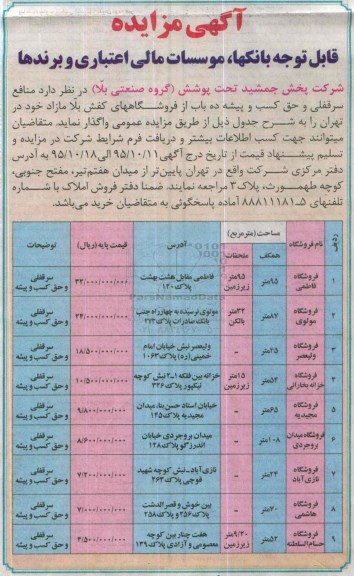 آگهی مزایده
قابل توجه بانکها، موسسات مالی اعتباری و برندها
شرکت پخش جمشید تحت پوشش (گروه صنعتی بلّا) در نظر دارد منافع
سرقفلی و حق کسب و پیشه ده باب از فروشگاههای کفش بلّا مازاد خود در
تهران را به شرح جدول ذیل از طریق مزایده عمومی واگذار نماید. متقاضیان
میتوانند جهت کسب اطلاعات بیشتر و دریافت فرم شرایط شرکت در مزایده و
تسلیم پیشنهاد قیمت از تاریخ درج آگهی ۹۵/۱۰/۱۱ الی ۹۵/۱۰/۱۸ به آدرس
دفتر مرکزی شرکت واقع در تهران پایین‌تر از میدان هفتم‌تیر، مفتح جنوبی،
کوچه طهمورث، پلاک ۳ مراجعه نمایند. ضمنا دفتر فروش املاک با شماره
تلفنهای ۵-۸۸۸۱۱۱۸۱ آماده پاسخگوئی به متقاضیان خرید می‌باشد.
ردیف | نام فروشگاه | مساحت (مترمربع) همکف | ملحقات | آدرس | قیمت پایه (ریال) | توضیحات
۱ | فروشگاه فاطمی | ۹۵متر | ۹۵متر زیرزمین | فاطمی مقابل هشت بهشت پلاک ۱۲۰ | ۳۲/۰۰۰/۰۰۰/۰۰۰ | سرقفلی و حق کسب و پیشه
۲ | فروشگاه مولوی | ۸۷متر | ۳۲متر بالکن | مولوی نرسیده به چهارراه جنب بانک صادرات پلاک ۲۷۳ | ۲۴/۰۰۰/۰۰۰/۰۰۰ | سرقفلی و حق کسب و پیشه
۳ | فروشگاه ولیعصر | ۲۵متر | - | ولیعصر نبش خیابان امام خمینی (ره) پلاک ۱۰۶۳ | ۱۸/۵۰۰/۰۰۰/۰۰۰ | سرقفلی و حق کسب و پیشه
۴ | فروشگاه خزانه بخارائی | ۵۴متر | ۱۵متر زیرزمین | خزانه بین فلکه ۱-۲ نبش کوچه نیکپور پلاک ۳۲۶ | ۱۰/۵۰۰/۰۰۰/۰۰۰ | سرقفلی و حق کسب و پیشه
۵ | فروشگاه مجیدیه | ۶۵متر | - | خیابان استاد حسن بنا، میدان مجیدیه پلاک ۱۴۵ | ۹/۸۰۰/۰۰۰/۰۰۰ | سرقفلی و حق کسب و پیشه
۶ | فروشگاه میدان بروجردی | ۱۰۸متر | - | میدان بروجردی خیابان اندرزگو پلاک ۱۲۸ | ۸/۶۰۰/۰۰۰/۰۰۰ | سرقفلی و حق کسب و پیشه
۷ | فروشگاه نازی آباد | ۲۴متر | - | نازی آباد-نبش کوچه شهید قوچی پلاک ۲۶۳ | ۷/۲۰۰/۰۰۰/۰۰۰ | سرقفلی و حق کسب و پیشه
۸ | فروشگاه هاشمی | ۷۰متر | - | بین خوش و قصرالدشت پلاک ۲۵۶ و پلاک ۲۵۸ | ۷/۰۰۰/۰۰۰/۰۰۰ | سرقفلی و حق کسب و پیشه
۹ | فروشگاه حسام‌السلطنه | ۵۲متر | ۹/۲۰متر زیرزمین | هفت چنار بین کوچه معصومی و آزادی پلاک ۱۳۹ | ۳/۵۰۰/۰۰۰/۰۰۰ | سرقفلی و حق کسب و پیشه